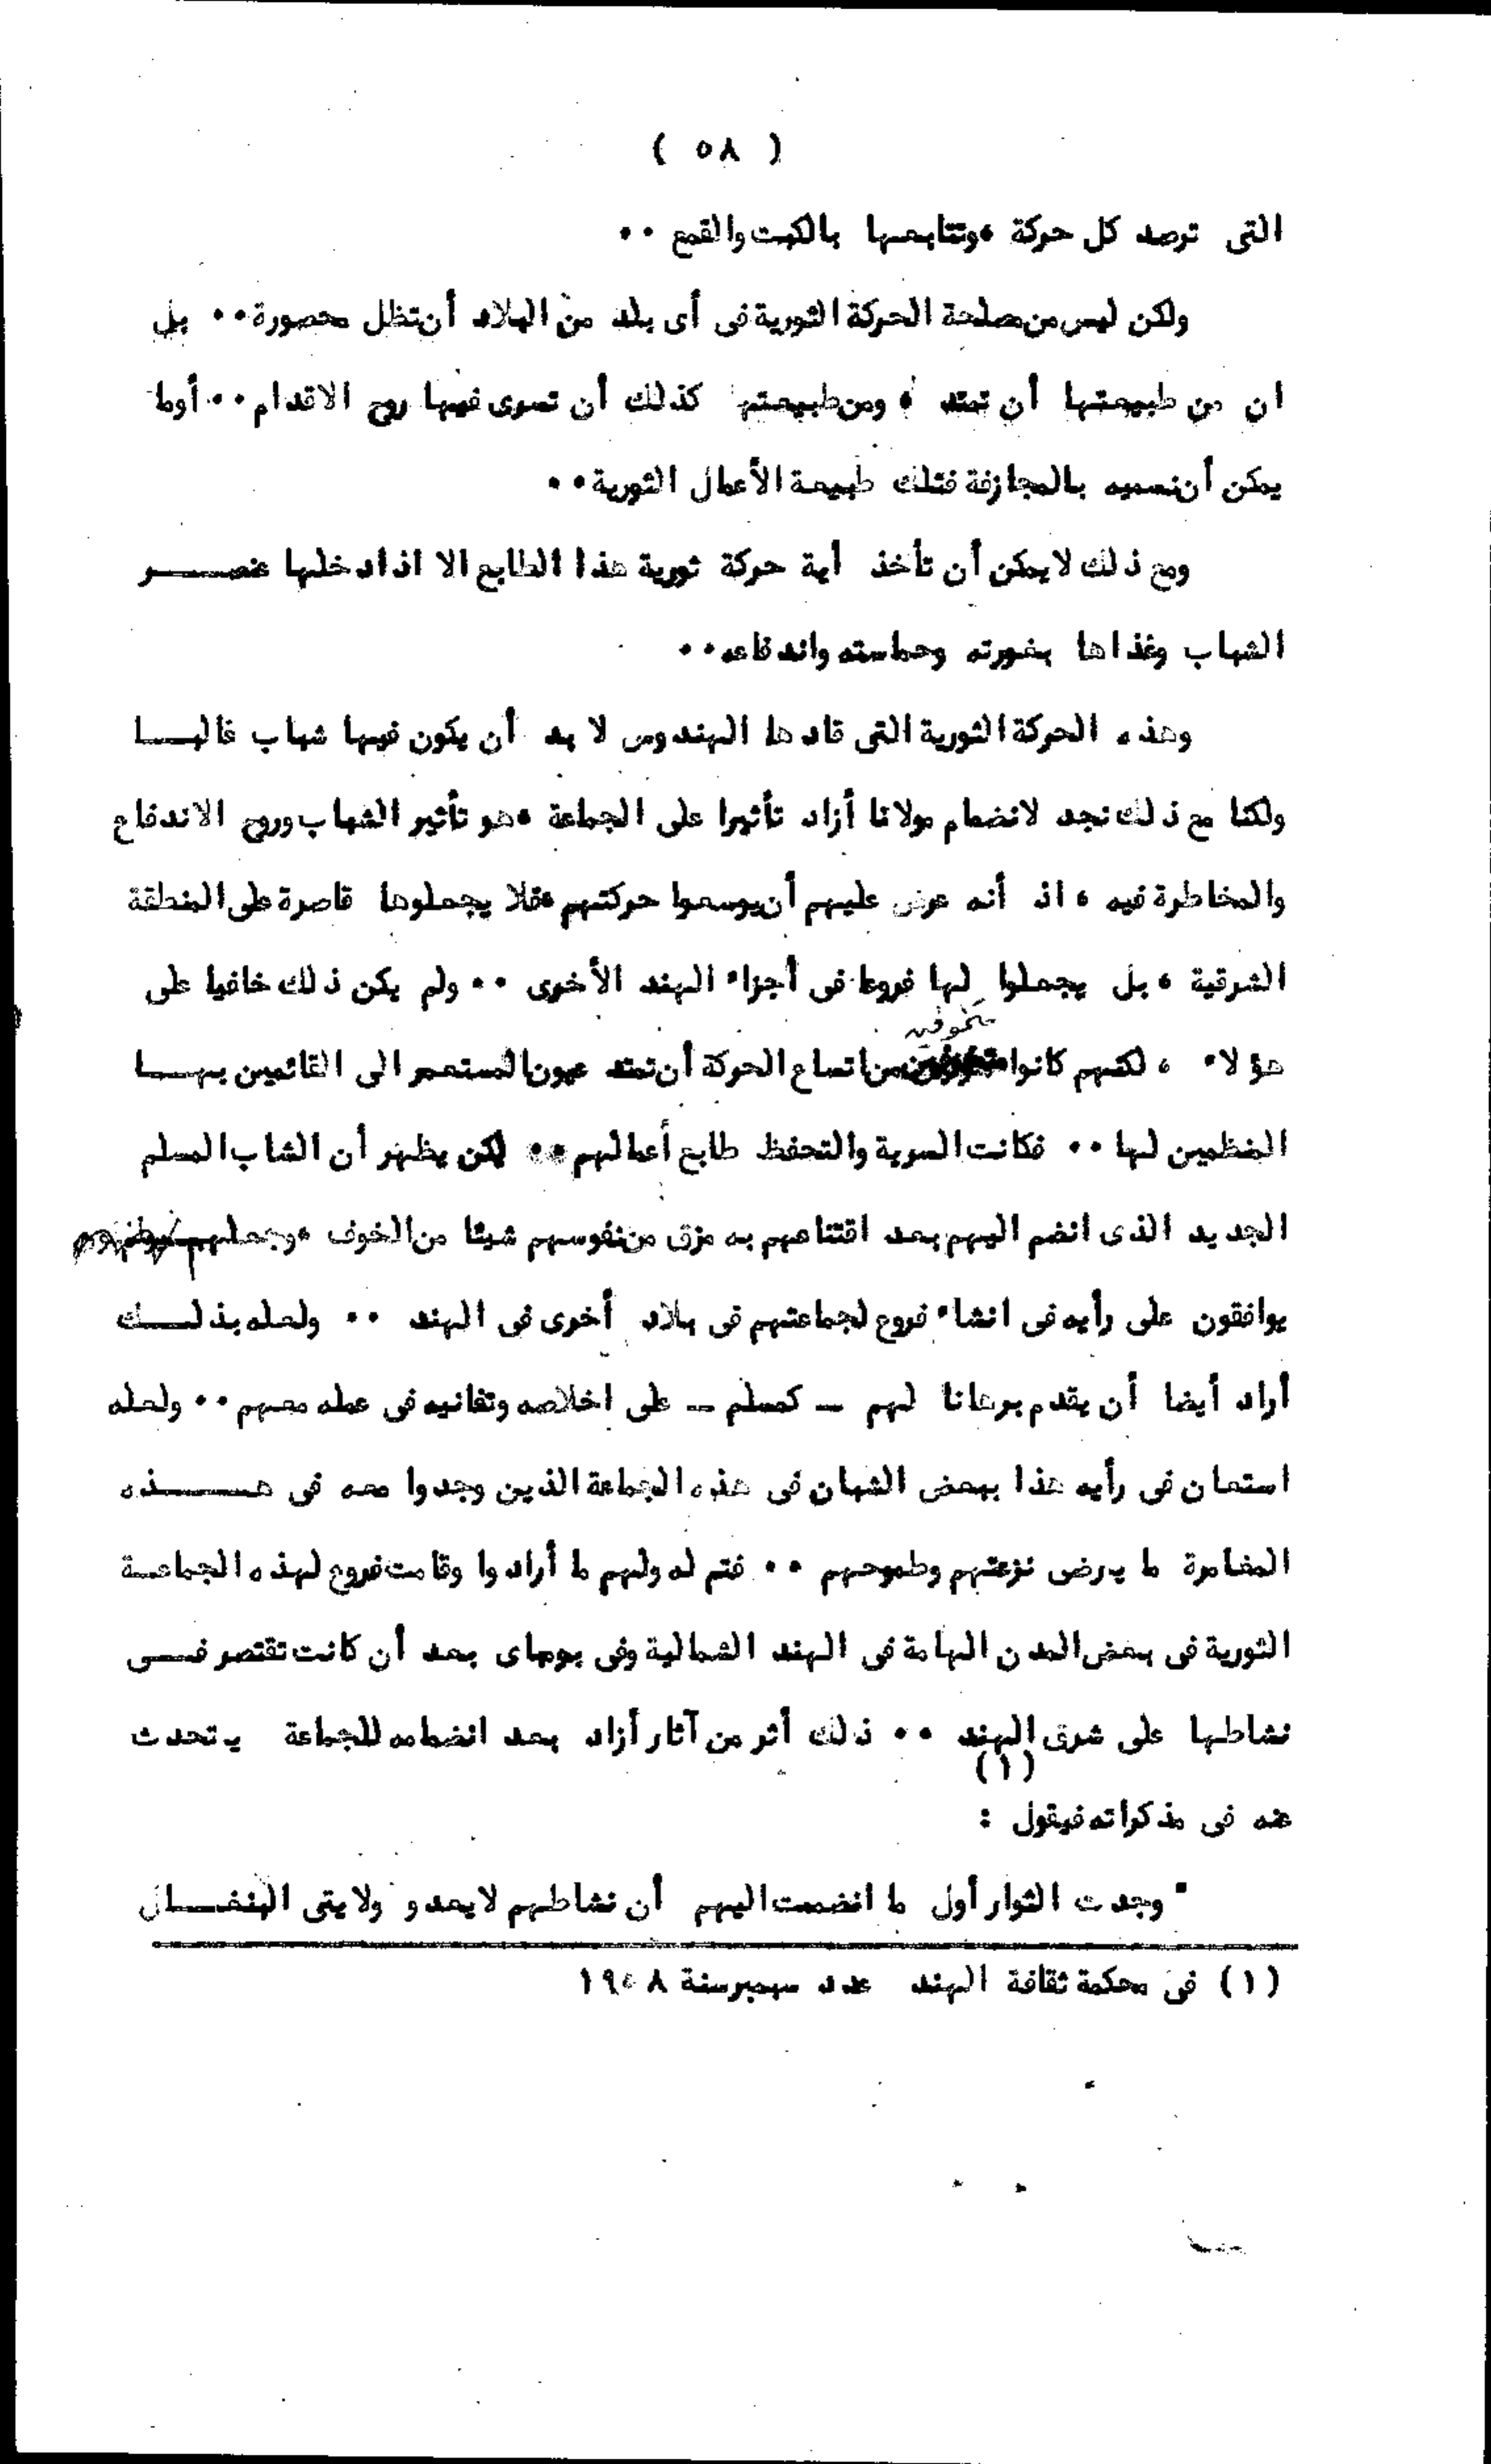 ( ٥٨ )
التى ترصد كل حركة ،وتتابعها بالكبت والقمع ٠٠
ولكن ليس من مصلحة الحركة الثورية فى أى بلد من البلاد أن تظل محصورة ٠٠ بل
ان من طبيعتها أن تمتد ، ومن طبيعتها كذلك أن تسرى فيها روح الاقدام ٠٠ أوما
يمكن أن نسميه بالمجازفة فتلك طبيعة الأعمال الثورية ٠٠
ومع ذلك لايمكن أن تأخذ أية حركة ثورية هذا الطابع الا اذا دخلها عنصــــر
الشباب وغذاها بفورته وحماسته واندفاعه ٠٠
وهذه الحركة الثورية التى قادها الهندوس لا بد أن يكون فيها شباب غالبـــا
ولكنا مع ذلك نجد لانضمام مولانا أزاد تأثيرا على الجماعة ،هو تأثير الشباب وروح الاندفاع
والمخاطرة فيه ، اذ أنه عرض عليهم أن يوسعوا حركتهم ،فلا يجعلوها قاصرة على المنطقة
الشرقية ، بل يجعلوا لها فروعا فى أجزاء الهند الأخرى ٠٠ ولم يكن ذلك خافيا على
هؤلاء ، لكنهم كانوا متخوفين من اتساع الحركة أن تمتد عيون المستعمر الى القائمين بهــــا
المنظمين لها ٠٠ فكانت السرية والتحفظ طابع أعمالهم ٠٠ لكن يظهر أن الشاب المسلم
الجديد الذى انضم اليهم بعد اقتناعهم به مزق من نفوسهم شيئا من الخوف ،وجعلهم
يوافقون على رأيه فى انشاء فروع لجماعتهم فى بلاد أخرى فى الهند ٠٠ ولعله بذلــــك
أراد أيضا أن يقدم برهانا لهم ــ كمسلم ــ على اخلاصه وتفانيه فى عمله معهم ٠٠ ولعله
استعان فى رأيه هذا ببعض الشبان فى هذه الجماعة الذين وجدوا معه فى هــــــذه
المغامرة ما يرضى نزعتهم وطموحهم ٠٠ فتم له ولهم ما أرادوا وقامت فروع لهذه الجماعــة
الثورية فى بعض المدن الهامة فى الهند الشمالية وفى بومباى بعد أن كانت تقتصر فــــى
نشاطها على شرق الهند ٠٠ ذلك أثر من آثار أزاد بعد انضمامه للجماعة يتحدث
عنه فى مذكراته (١) فيقول :
" وجدت الثوار أول ما انضممت اليهم أن نشاطهم لايعدو ولايتى البنغــــال
(١) فى محكمة ثقافة الهند عدد سبمبر سنة ١٩٥٨